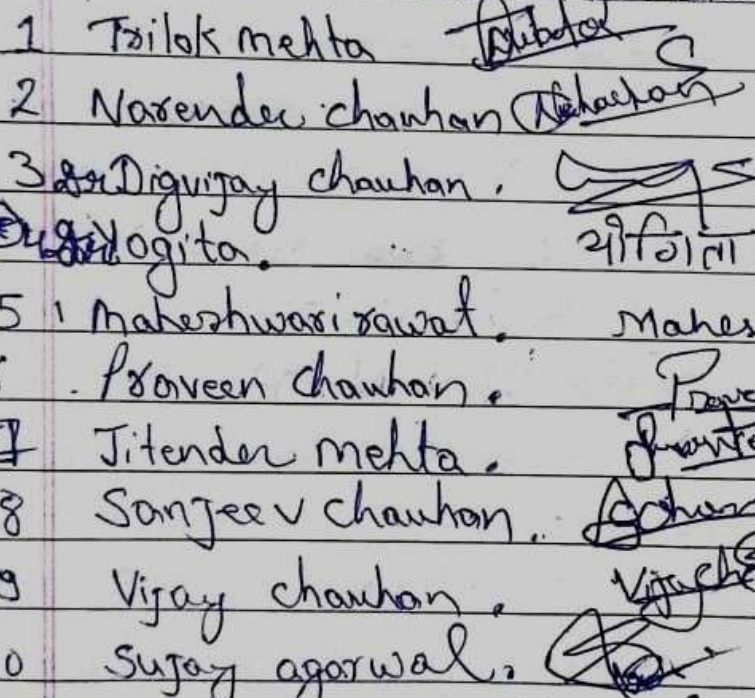 1 Trilok mehta
2 Narender chauhan Nchauhan
3 Digvijay chauhan.
Yogita. योगिता
5 maheshwari rawat. Mahes
. Praveen Chauhan. Prave
7 Jitender mehta.
8 Sanjeev chauhan.
9 Vijay chauhan. Vijay Ch
0 Sujay agarwal.